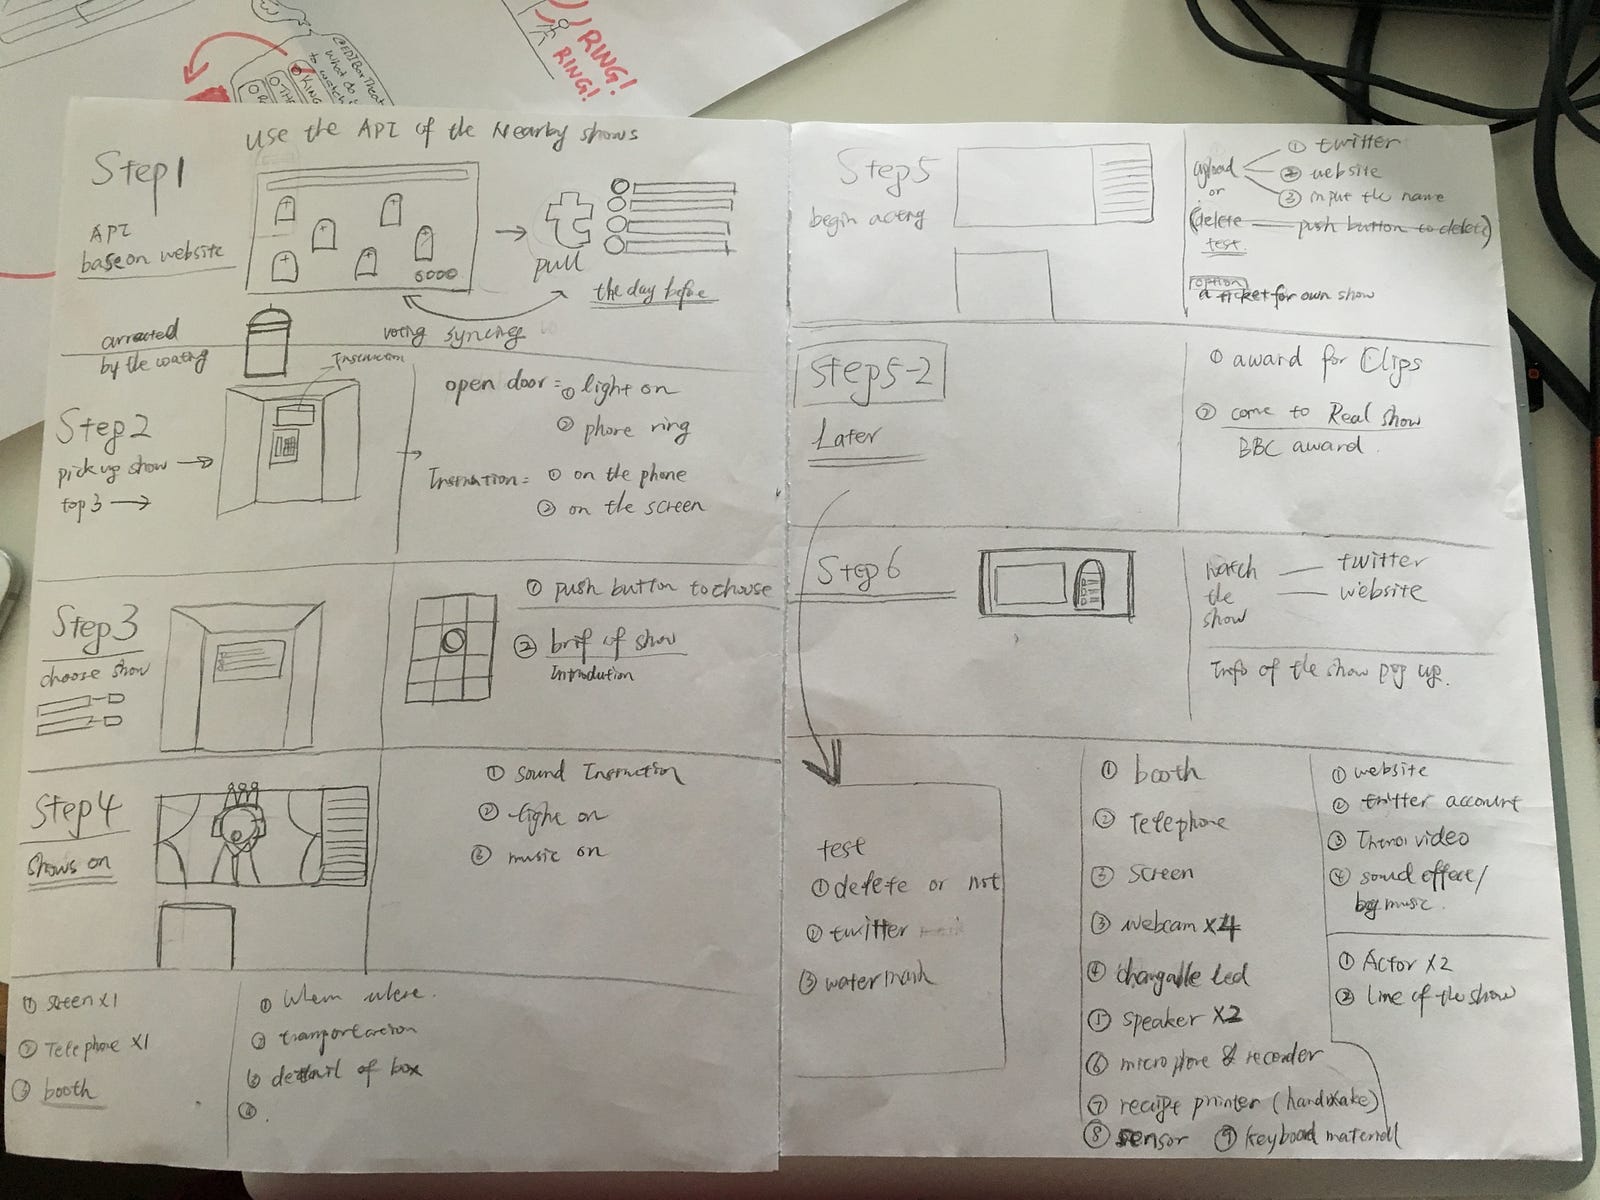 @EDIBoxTheat
What do
to watch
KING
OTHE
RING!
RING!
use the API of the Nearby shows
Step1
API
base on website
6000
pull
the day before
voting syncing
arracted
by the waiting
Instruction
Step2
pick up show
top 3
open door = ① light on
② phone ring
Instruction = ① on the phone
② on the screen
Step3
choose show
① push button to choose
② brif of show
Introdution
Step4
shows on
① sound Instruction
② light on
③ music on
① screen X1
② Telephone X1
③ booth
① When where.
② transportation
③ detail of box
④.
Step5
begin acting
upload
or
① twitter
② website
③ input the name
(delete push button to delete)
test.
option
a ticket for own show
Step5-2
Later
① award for Clips
② come to Real show
BBC award.
Step6
watch
the
show
twitter
website
Info of the show pop up.
test
① delete or not
② twitter
③ watermark
① booth
② Telephone
③ screen
③ webcam X4
④ changable led
① speaker X2
⑥ microphone & recorder
⑦ receipt printer (handmake)
⑧ sensor ⑨ keyboad materiall
① website
② twitter account
③ video
④ sound effect/
bg music.
① Actor X2
② Line of the show